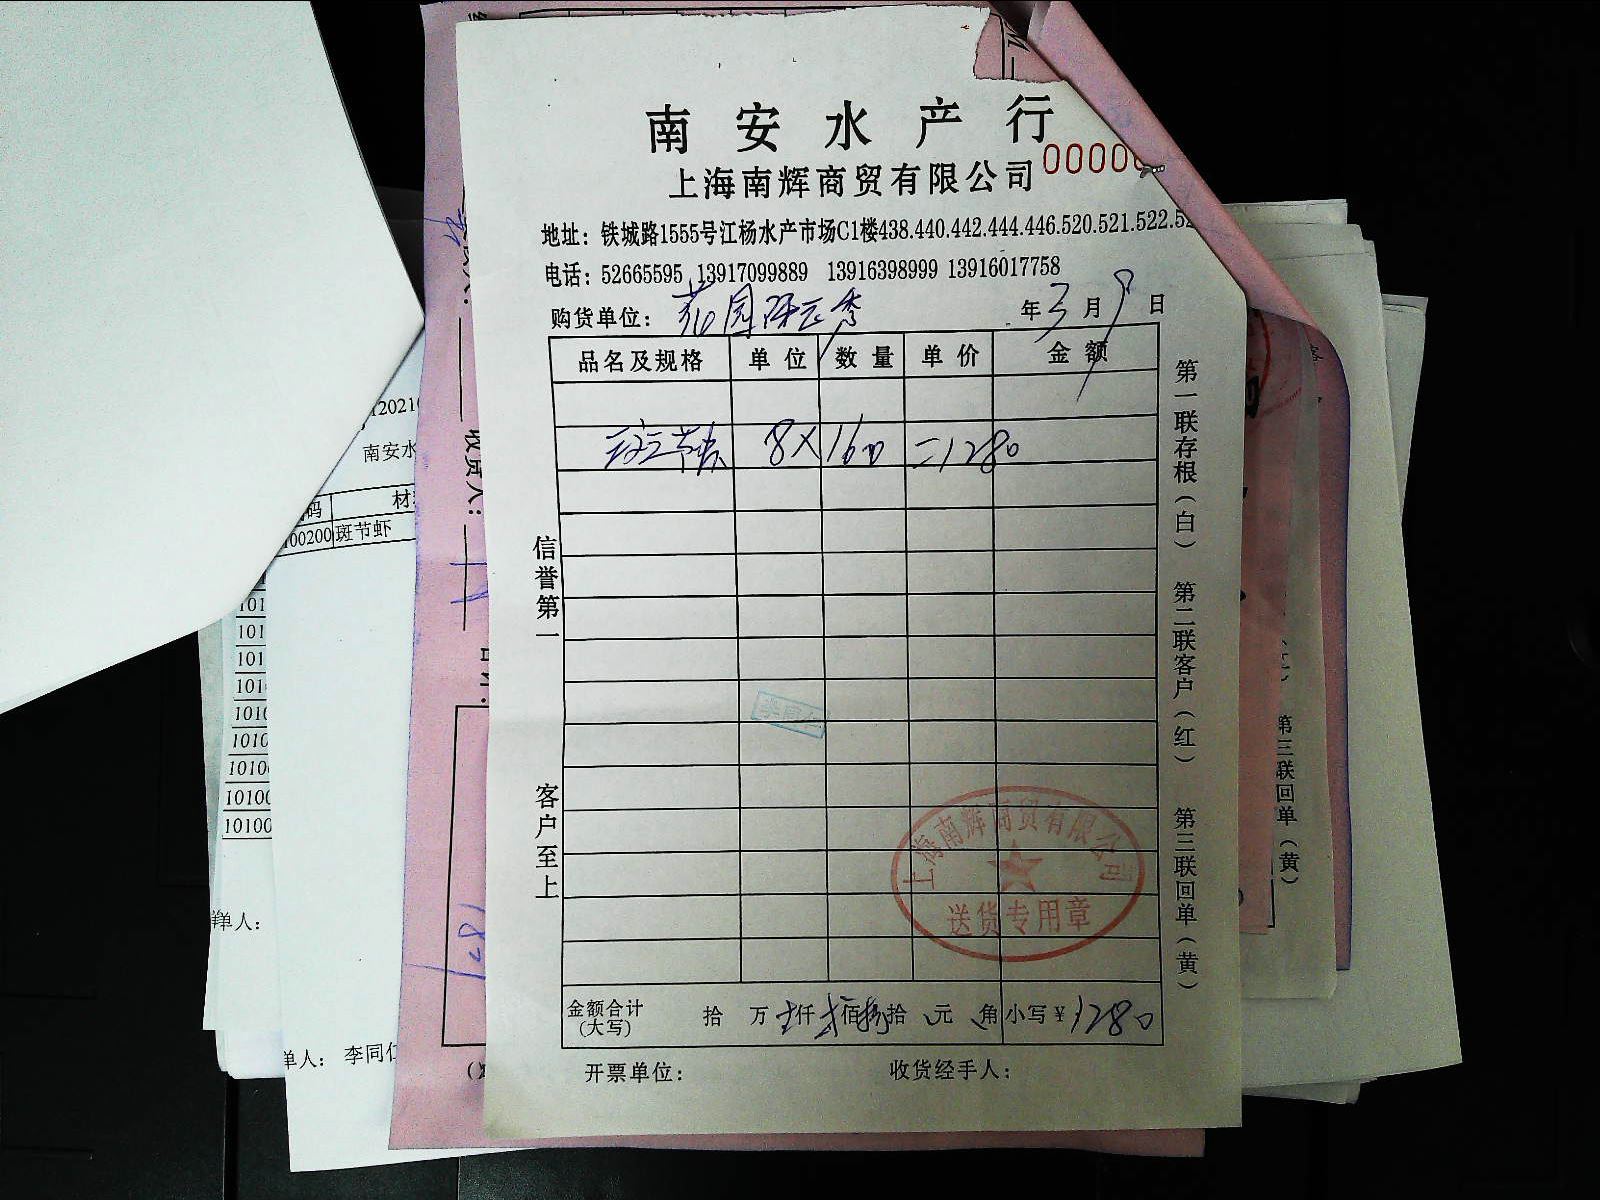 南安水产行
上海南辉商贸有限公司 0000
地址：铁城路1555号江杨水产市场C1楼438.440.442.444.446.520.521.522.52
电话：52665595 13917099889 13916398999 13916017758
购货单位：花园 年3月9日
品名及规格 单位 数量 单价 金额
斑节虾 8×160=1280
信誉第一
客户至上
第一联存根（白） 第二联客户（红） 第三联回单（黄）
李同仁
上海南辉商贸有限公司
送货专用章
金额合计（大写） 拾 万壹仟贰佰捌拾 元 角 小写￥1280
开票单位： 收货经手人：
12021
南安水
码 材
00200 斑节虾
收货人：
101
101
101
101
1010
1010
1010
10100
10100
单人：
单人： 李同仁
第三联回单（黄）